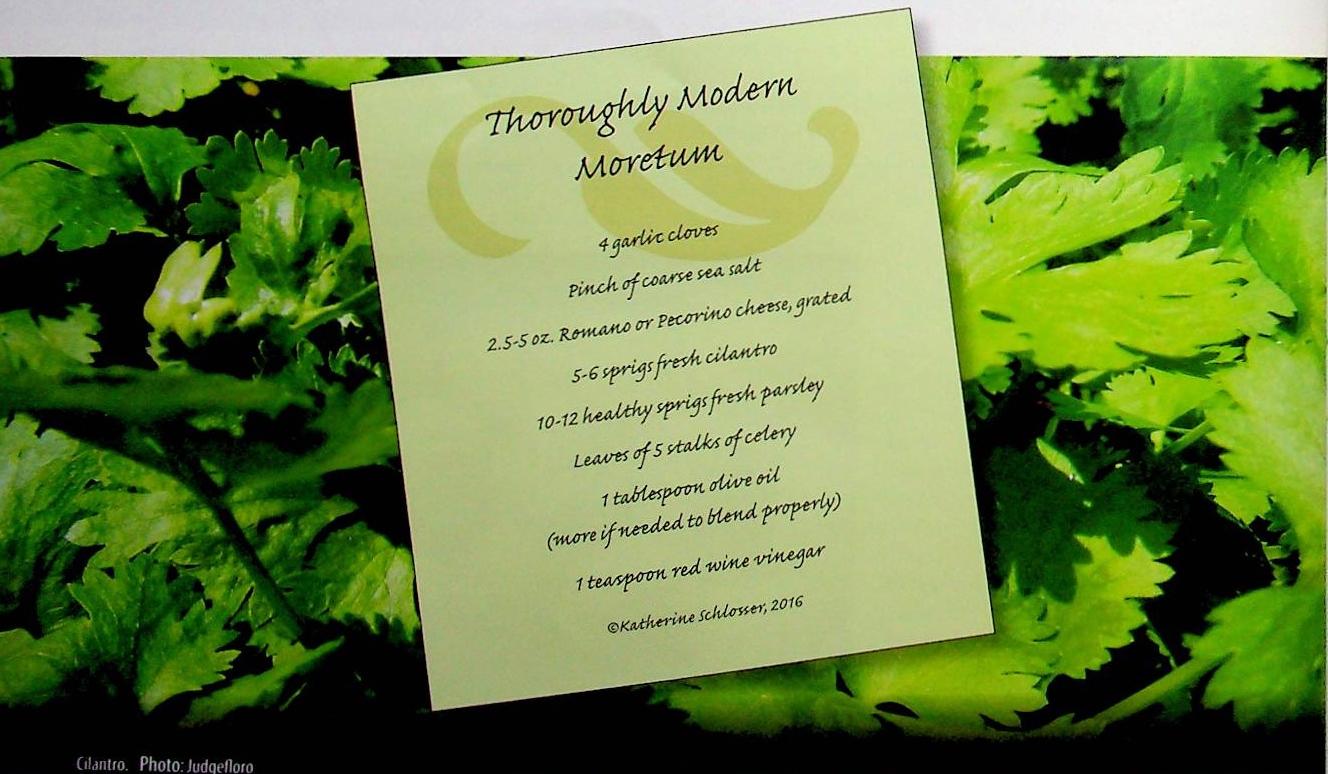 Thoroughly Modern
Moretum
4 garlic cloves
Pinch of coarse sea salt
2.5-5 oz. Romano or Pecorino cheese, grated
5-6 sprigs fresh cilantro
10-12 healthy sprigs fresh parsley
Leaves of 5 stalks of celery
1 tablespoon olive oil
(more if needed to blend properly)
1 teaspoon red wine vinegar
©Katherine Schlosser, 2016
Cilantro. Photo: Judgefloro